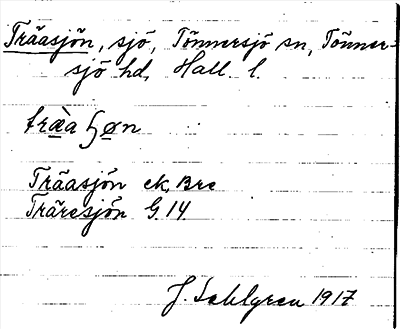 Träasjön, sjö, Tönnersjö sn, Tönner-
sjö hd, Hall. l.
træ̀a ɧøn
Träasjön ek, Bre
Träresjön G 14
J. Sahlgren 1917